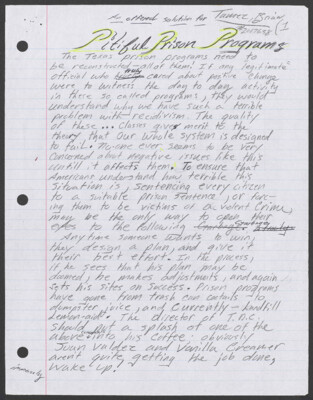 offered solution to Tadeez, Brian
1
Pitiful Prison Programs
The Texas prison programs need to
be reconstructed - all of them! If any legitimate
official who really cared about positive change
were to witness the day to day activity
in these so called programs, they would
understand why we have such a terrible
problem with recidivism. The quality
of these... Claims gives merit to the
theory that our whole system is designed
to fail. No-one ever seems to be very
concerned about negative issues like this
until it affects them. To ensure that
Americans understand how terrible this
situation is, sentencing every citizen
to a suitable prison sentence, or forc-
ing them to be victims of a violent crime,
may be the only way to open their
eyes to the following
Anytime someone wants to win,
they design a plan, and give it
their best effort. In the process,
if he sees that his plan may be
doomed, he makes adjustments, and again
sets his sites on success. Prison programs
have gone from trash can contents - to
dumpster juice, and currently - landfill
lemon-aid. The director of T.D.C.
should put a splash of one of the
above into his coffee; obviously
Juan Valdez and Vanilla Creamer
arent quite getting the job done,
Wake up!